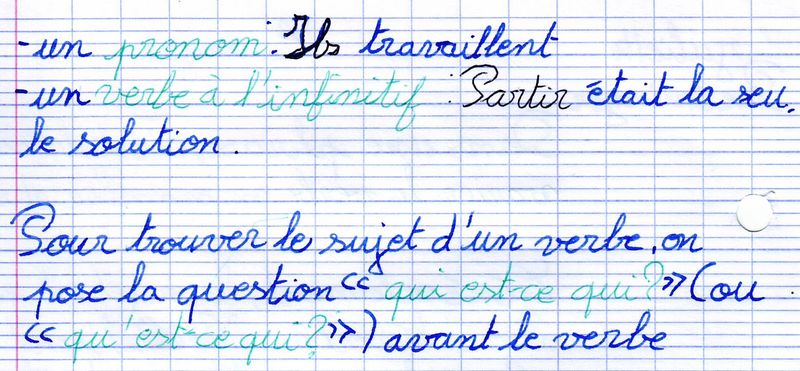 - un pronom : Ils travaillent
- un verbe à l'infinitif : Partir était la seu-
le solution.
Pour trouver le sujet d'un verbe, on
pose la question « qui est-ce qui ? » (ou
« qu'est-ce qui ? ») avant le verbe